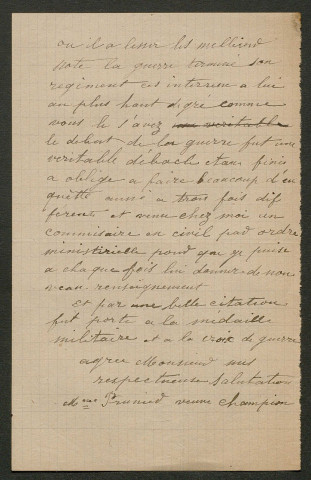 ou il a lesser les
note la guerre terminé son
regiment ces interresse a lui
au plus haut degre comme
vous le s'avez
le debut de la guerre fut une
veritable débacle etans finis
a obligé a faire beaucoup d'en
quette aussi a trois fois dif
ferente et venue chez moi un
commissaire en civil pad ordre
ministerielle poud que je puise
a chaque fois lui donner de nou
veau renseignement
Et par une belle citation
fut porte a la médaille
militaire et a la croix de guerre
agree Monsieud mes
respectueuse salutation
Mme Prunied veuve Champion